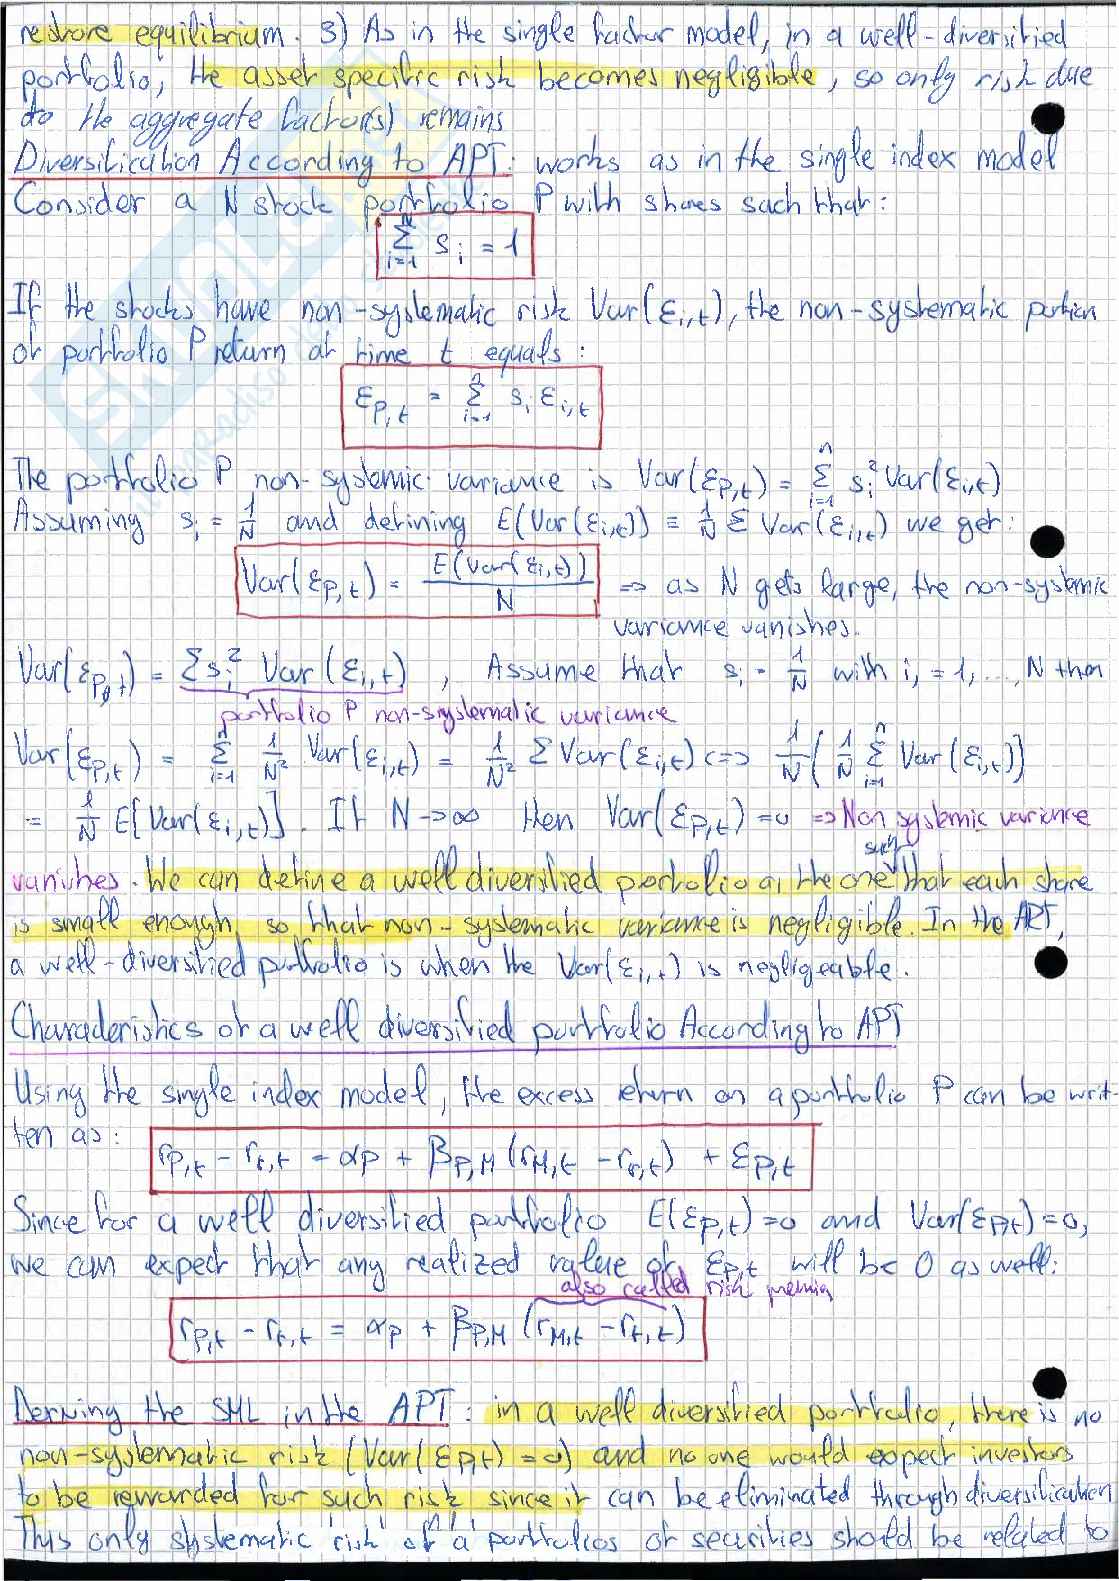 restore equilibrium. 3) As in the single factor model, in a well-diversified
portfolio, the asset specific risk becomes negligible, so only risk due
to the aggregate factor(s) remains
Diversification According to APT: works as in the single index model
Consider a N stock portfolio P with shares such that:
N Σ i=1 s_i = 1
If the stocks have non-systematic risk Var(ε_i,t), the non-systematic portion
of portfolio P return at time t equals:
ε_P,t = n Σ i=1 s_i ε_i,t
The portfolio P non-systemic variance is Var(ε_P,t) = n Σ i=1 s_i² Var(ε_i,t)
Assuming s_i = 1/N and defining E(Var(ε_i,t)) ≡ 1/N Σ Var(ε_i,t) we get:
Var(ε_P,t) = E(Var(ε_i,t))/N => as N gets large, the non-systemic
variance vanishes.
Var(ε_P,t) = Σ s_i² Var(ε_i,t), Assume that s_i = 1/N with i, = 1,..., N then
portfolio P non-systematic variance
Var(ε_P,t) = n Σ i=1 1/N² Var(ε_i,t) = 1/N² Σ Var(ε_i,t) <=> 1/N( 1/N n Σ i=1 Var(ε_i,t))
= 1/N E[Var(ε_i,t)]. If N -> ∞ then Var(ε_P,t) = 0 => Non systemic variance
vanishes. We can define a well diversified portfolio as the one such that each share
is small enough, so that non-systematic variance is negligible. In the APT,
a well-diversified portfolio is when the Var(ε_i,t) is negligeable.
Characteristics of a well diversified portfolio According to APT
Using the single index model, the excess return on a portfolio P can be writ-
ten as: r_P,t - r_f,t = α_P + β_P,M (r_M,t - r_f,t) + ε_P,t
Since for a well diversified portfolio E(ε_P,t) = 0 and Var(ε_P,t) = 0,
we can expect that any realized value of ε_P,t will be 0 as well:
also called risk premia
r_P,t - r_f,t = α_P + β_P,M (r_M,t - r_f,t)
Deriving the SML in the APT: in a well diversified portfolio, there is no
non-systematic risk (Var(ε_P,t) = 0) and no one would expect investors
to be rewarded for such risk since it can be eliminated through diversification
This only systematic risk of a portfolios of securities should be related to